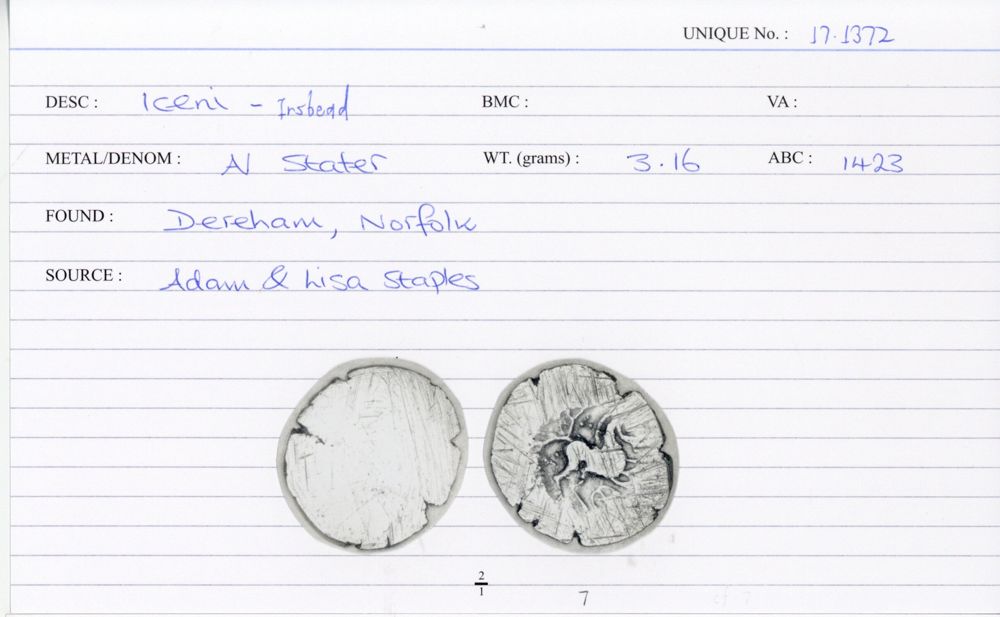 UNIQUE No. : 17.1372
DESC : Iceni - Irsbead BMC : VA :
METAL/DENOM : AV Stater WT. (grams) : 3.16 ABC : 1423
FOUND : Dereham, Norfolk
SOURCE : Adam & Lisa Staples
2
1
7 cf 7